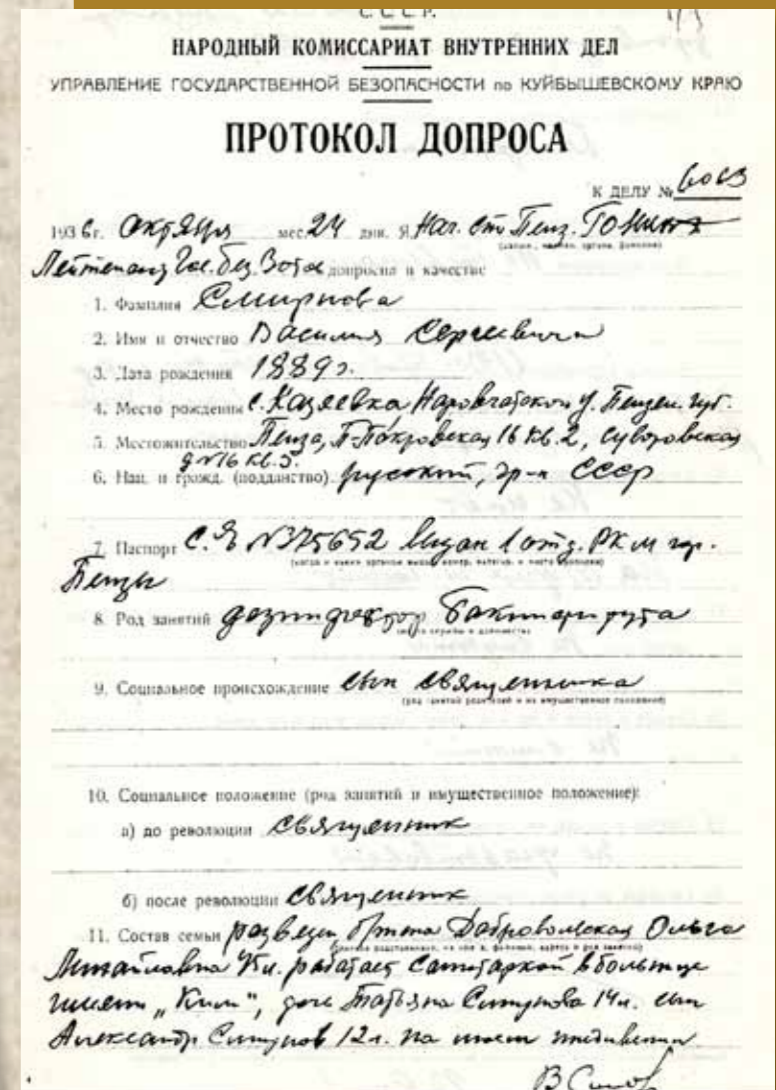 С.С.С.Р.
НАРОДНЫЙ КОМИССАРИАТ ВНУТРЕННИХ ДЕЛ
УПРАВЛЕНИЕ ГОСУДАРСТВЕННОЙ БЕЗОПАСНОСТИ по КУЙБЫШЕВСКОМУ КРАЮ
ПРОТОКОЛ ДОПРОСА
К ДЕЛУ № 6003
1936 г. октября мес. 24 дня. Я, Нач. Пенз.
Лейтенант Гос. Без. допросил в качестве
1. Фамилия Смирнова
2. Имя и отчество Василия Сергеевича
3. Дата рождения 1889 г.
4. Место рождения с. Казеевка Наровчатского у. Пензен. губ.
5. Местожительство Пенза, П-Покровская 16 кв. 2, Суворовская
д № 16 кв. 5.
6. Нац. и гражд. (подданство) русский, гр-н СССР
7. Паспорт С. Я № 375652 выдан 1 отд. РКМ гор.
Пензы
8. Род занятий дезинфектор Бакинститута
9. Социальное происхождение сын священника
(род занятий родителей и их имущественное положение)
10. Социальное положение (род занятий и имущественное положение):
а) до революции священник
б) после революции священник
11. Состав семьи разведен б/жена Добровольская Ольга
Михайловна работает санитаркой в больнице
имени „Ким", дочь Татьяна Смирнова 14 л. сын
Александр Смирнов 12 л. на моем иждивении